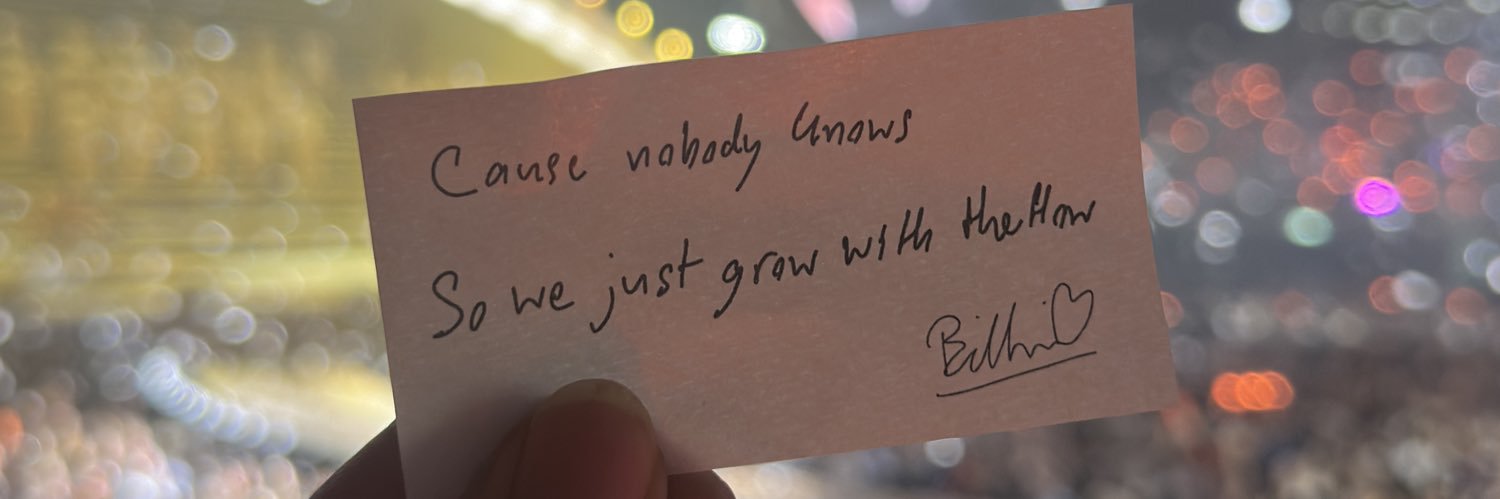 Cause nobody knows
So we just grow with the flow